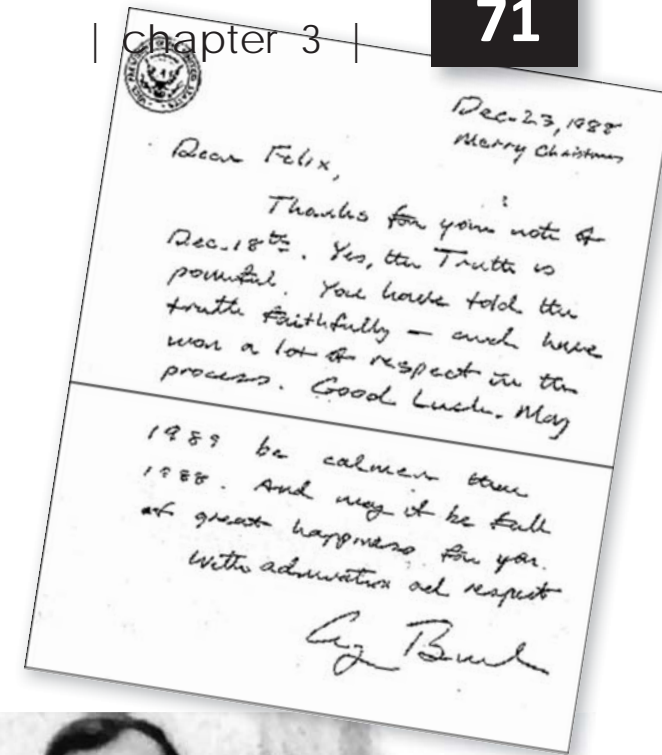 | chapter 3 |
71
Dec. 23, 1988
Merry Christmas
Dear Felix,
Thanks for your note of
Dec. 18th. Yes, the Truth is
powerful. You have told the
truth faithfully — and have
won a lot of respect in the
process. Good Luck. May
1989 be calmer than
1988. And may it be full
of great happiness for you.
With admiration and respect
Bush